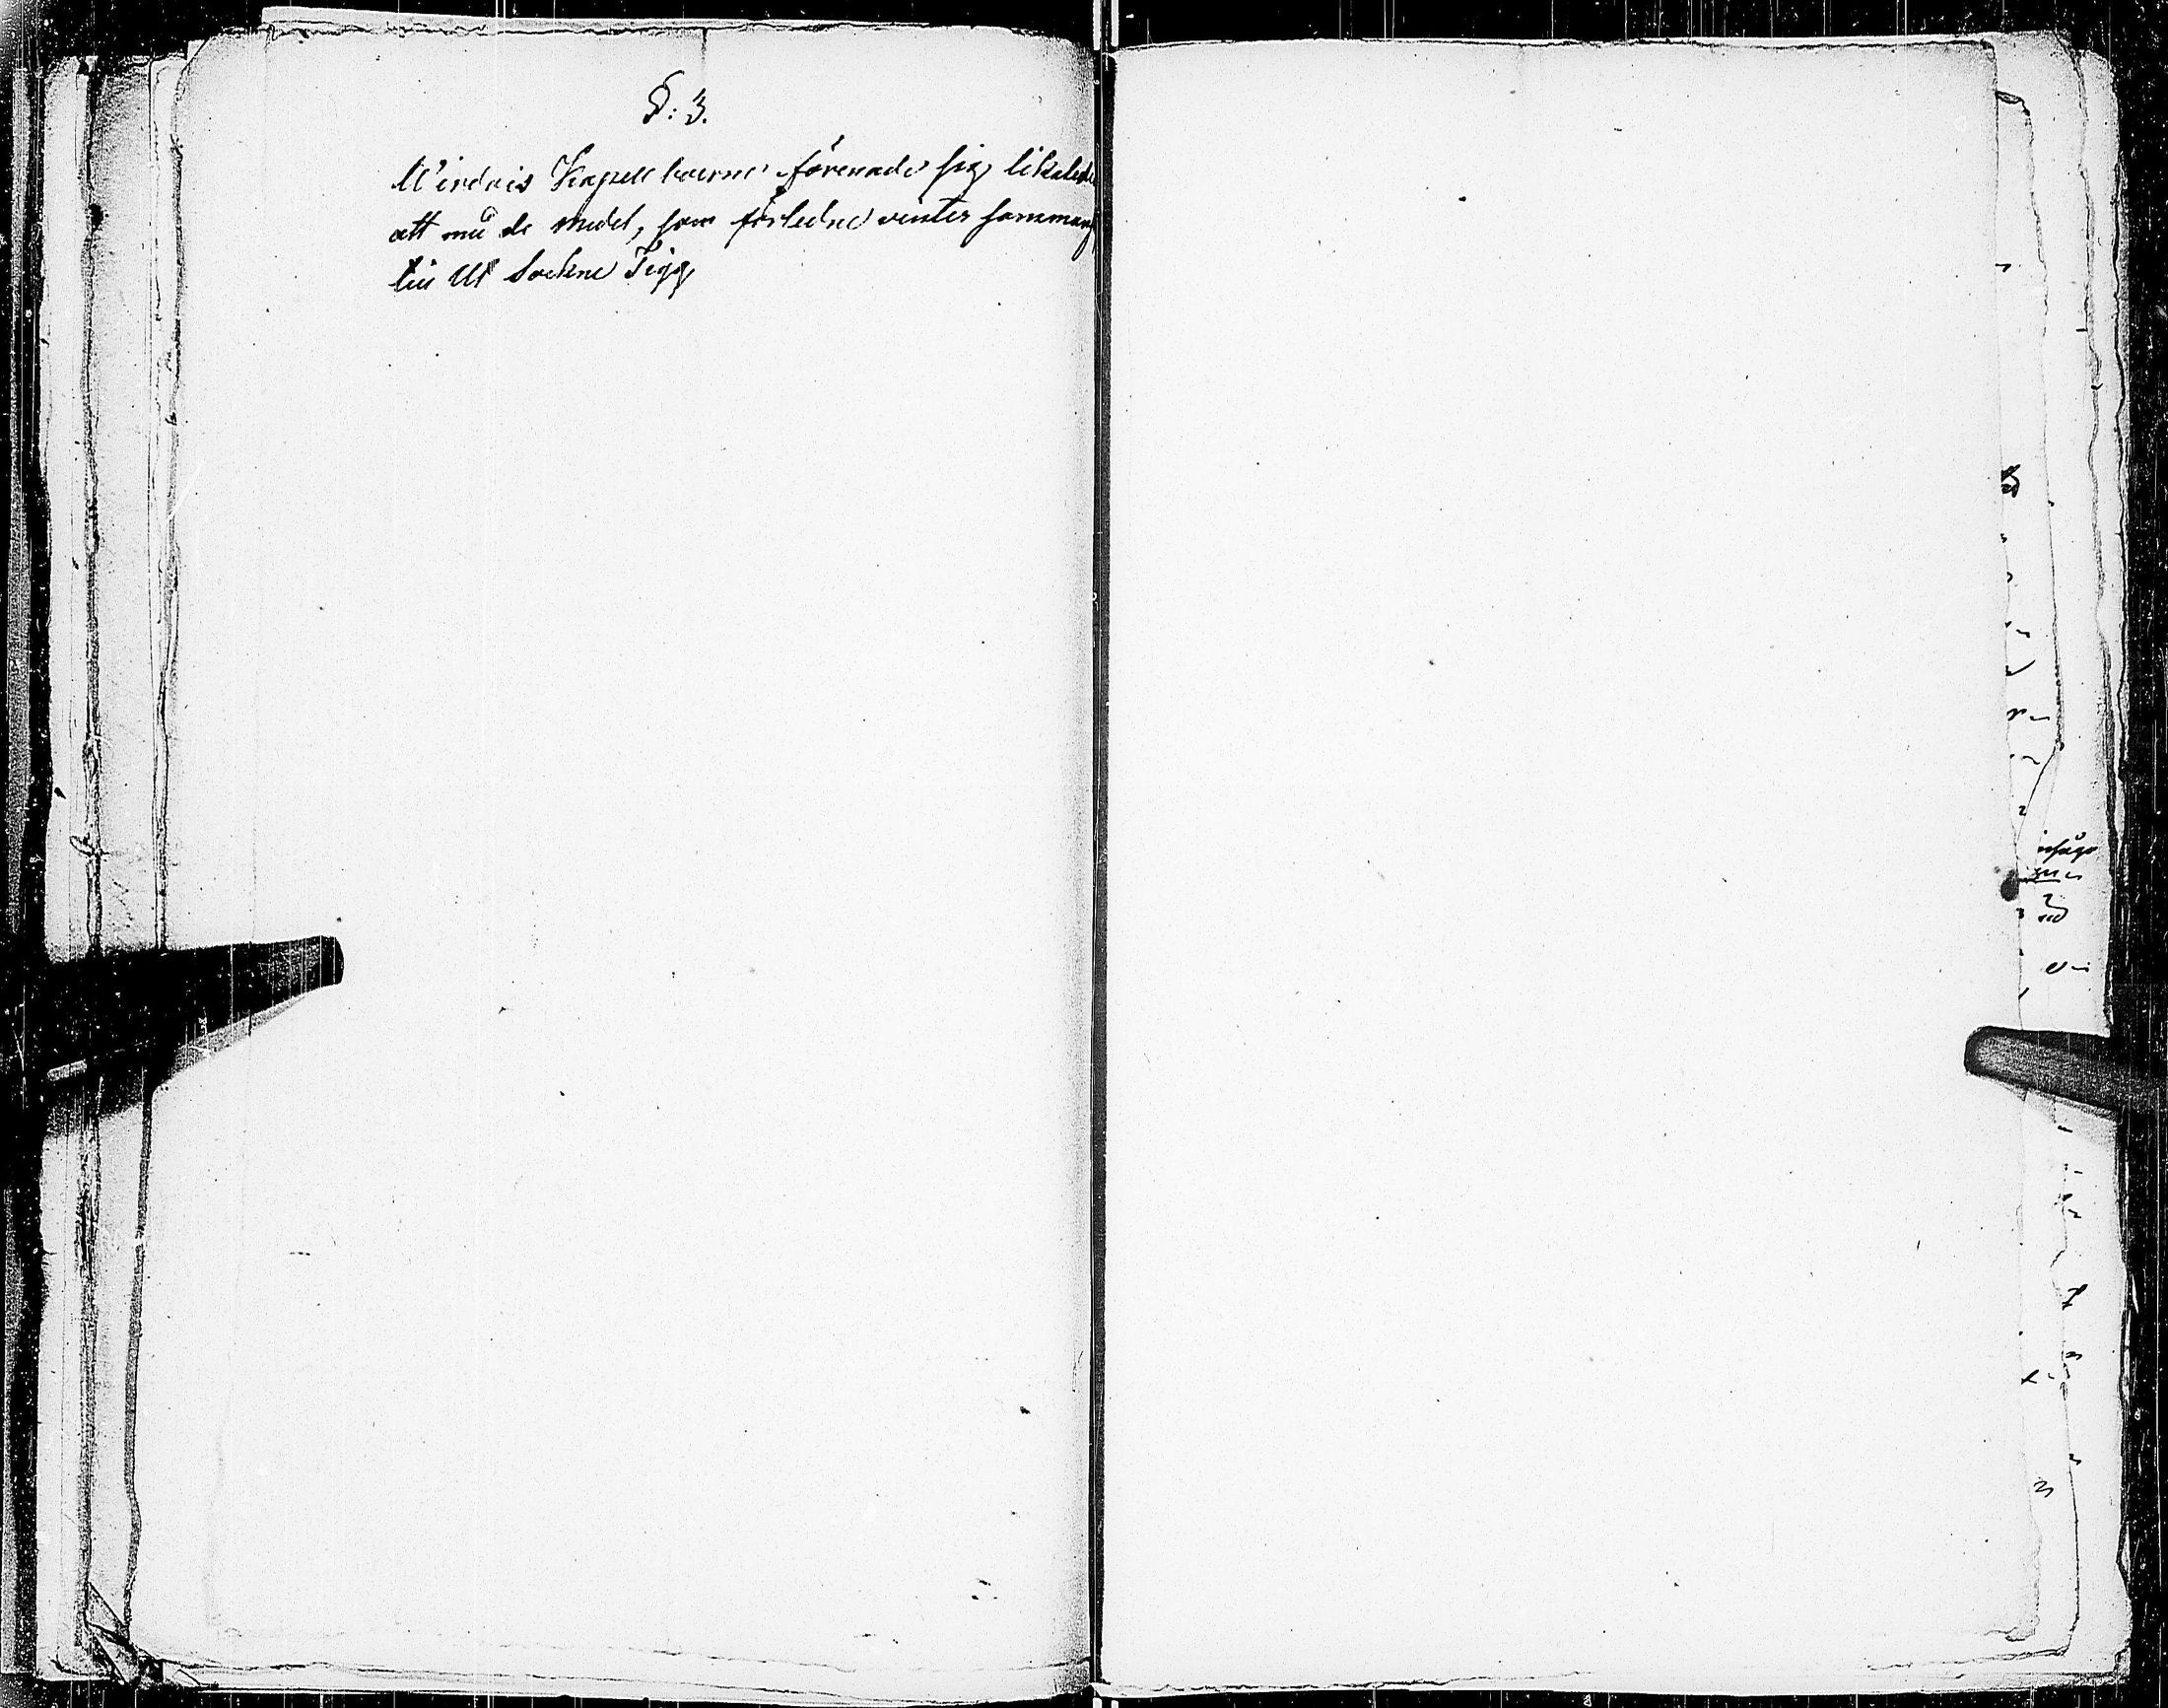 §: 3.
Wirdois Kapellboerne förenade sig likalede
att med de medel, som förledne winter samman
till Ut Sockne Tigg